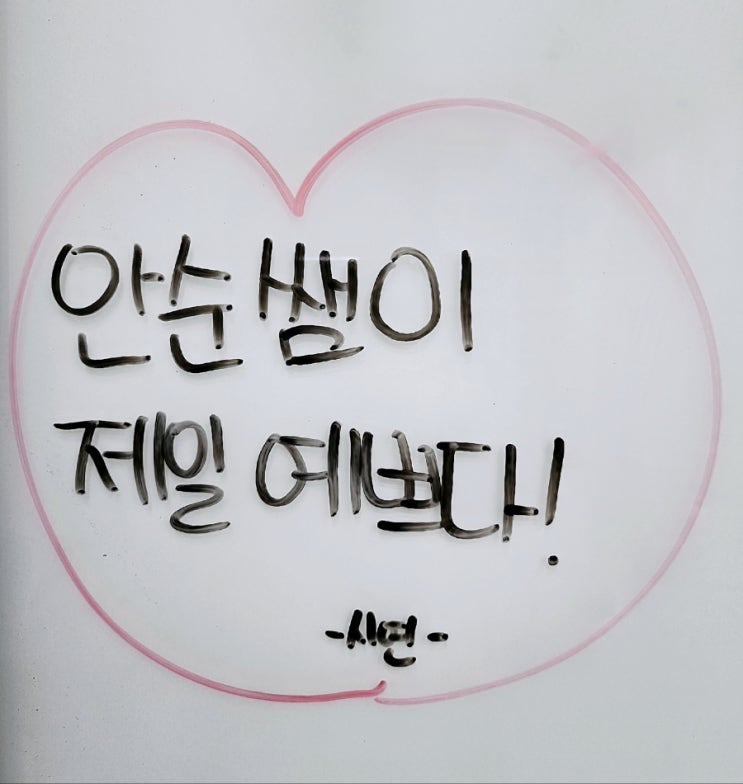 안순쌤이
제일 예쁘다!
-시연-